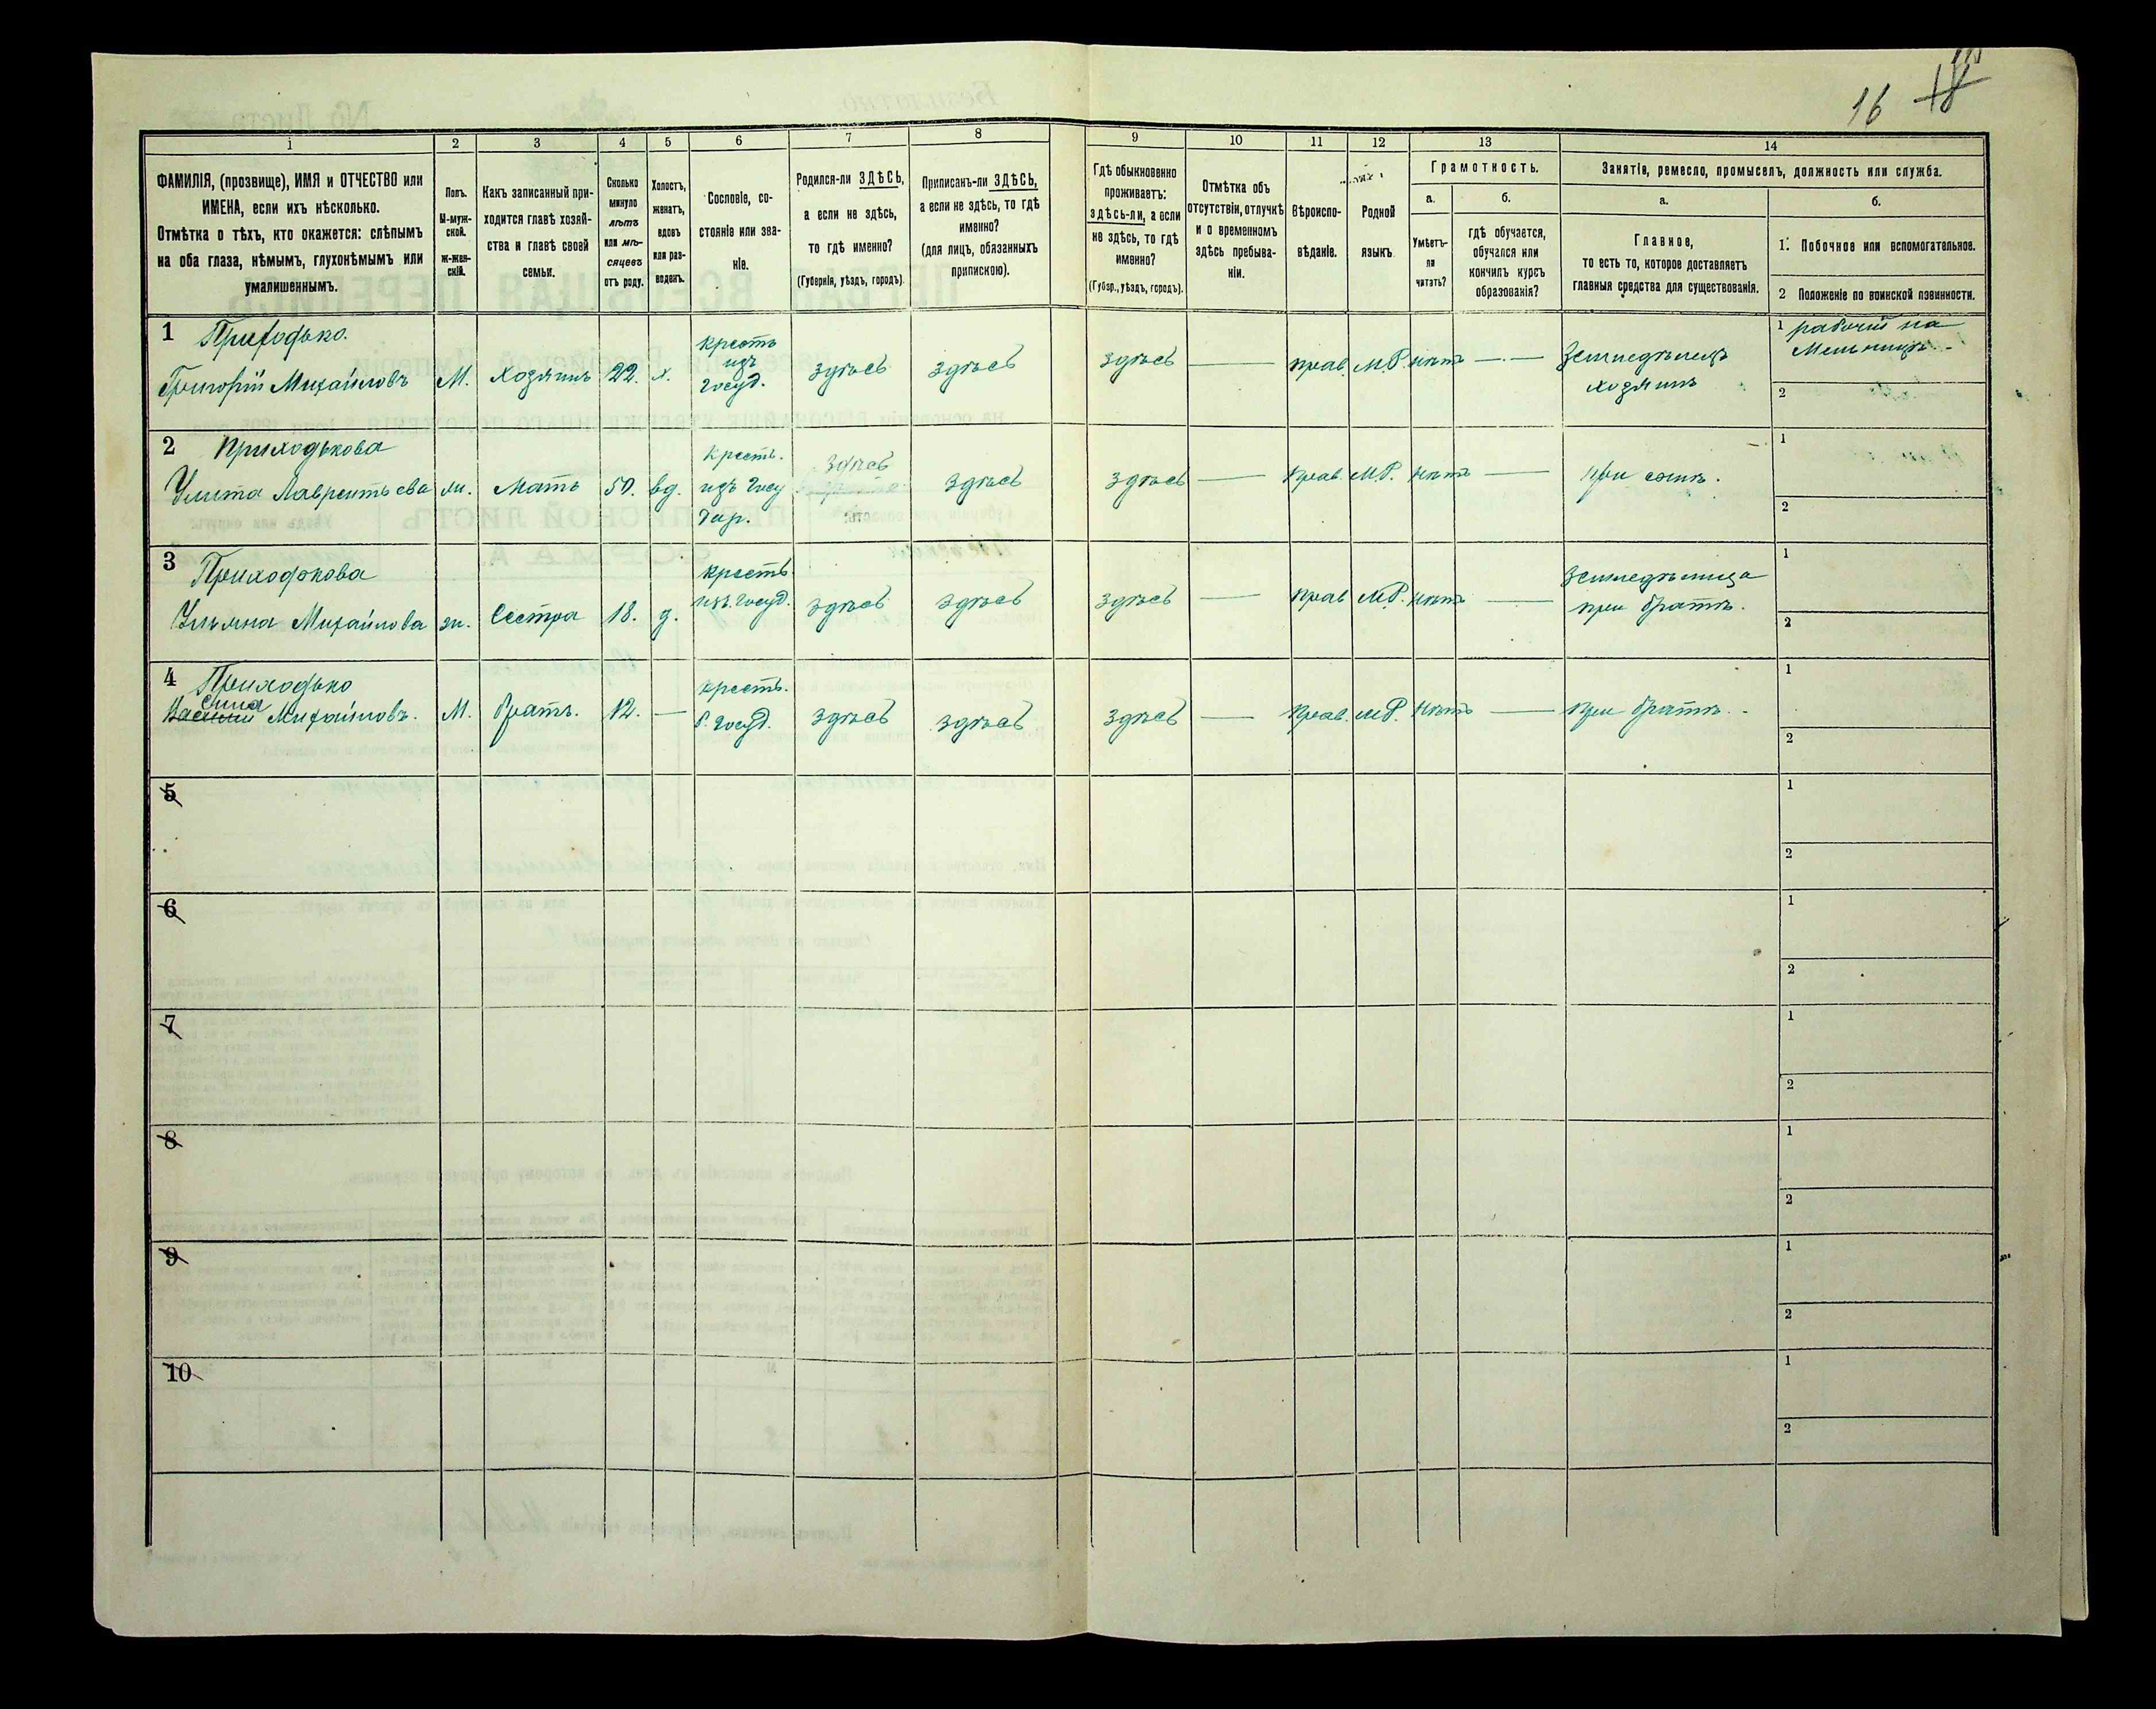 16 18
1 2 3 4 5 6 7 8 9 10 11 12 13 14
ФАМИЛІЯ, (прозвище), ИМЯ и ОТЧЕСТВО или
ИМЕНА, если ихъ нѣсколько.
Отмѣтка о тѣхъ, кто окажется: слѣпымъ
на оба глаза, нѣмымъ, глухонѣмымъ или
умалишеннымъ.
Полъ.
М-муж-
ской.
ж-жен-
скій.
Какъ записанный при-
ходится главѣ хозяй-
ства и главѣ своей
семьи.
Сколько
минуло
лѣтъ
или мѣ-
сяцевъ
отъ роду.
Холостъ,
женатъ,
вдовъ
или раз-
веденъ.
Сословіе, со-
стояніе или зва-
ніе.
Родился-ли ЗДѢСЬ,
а если не здѣсь,
то гдѣ именно?
(Губернія, уѣздъ, городъ).
Приписанъ-ли ЗДѢСЬ,
а если не здѣсь, то гдѣ
именно?
(для лицъ, обязанныхъ
припискою).
Гдѣ обыкновенно
проживаетъ:
здѣсь-ли, а если
не здѣсь, то гдѣ
именно?
(Губер., уѣздъ, городъ).
Отмѣтка объ
отсутствіи, отлучкѣ
и о временномъ
здѣсь пребыва-
ніи.
Вѣроиспо-
вѣданіе.
Родной
языкъ.
Грамотность.
а.
Умѣетъ-
ли
читать?
б.
гдѣ обучается,
обучался или
кончилъ курсъ
образованія?
Занятія, ремесло, промыселъ, должность или служба.
а.
Главное,
то есть то, которое доставляетъ
главныя средства для существованія.
б.
1. Побочное или вспомогательное.
2 Положеніе по воинской повинности.
1 Приходько.
Григорій Михайловъ М. Хозяинъ 22. х.
крестъ
изъ
Госуд.
здѣсь здѣсь здѣсь — прав. М.Р. нѣтъ —
Земледѣлецъ
хозяинъ
1 рабочій на
Мельницѣ.
2
2 Приходькова
Улита Лаврентьева ж. Мать 50. вд.
Крест.
изъ Госу
дар.
здѣсь
здѣсь здѣсь — Прав. М.Р. нѣтъ — При сынѣ.
1
2
3 Приходькова
Ульяна Михайлова ж. Сестра 18. д.
крестъ
изъ Госуд.
здѣсь здѣсь здѣсь — Прав М.Р. нѣтъ —
Земледѣлица
при братѣ.
1
2
4 Приходько
Михайловъ. М. братъ. 12. —
крест.
б. Госуд.
здѣсь здѣсь здѣсь — Прав. М.Р. нѣтъ — при братѣ.
1
2
5
1
2
6
1
2
7
1
2
8
1
2
9
1
2
10
1
2